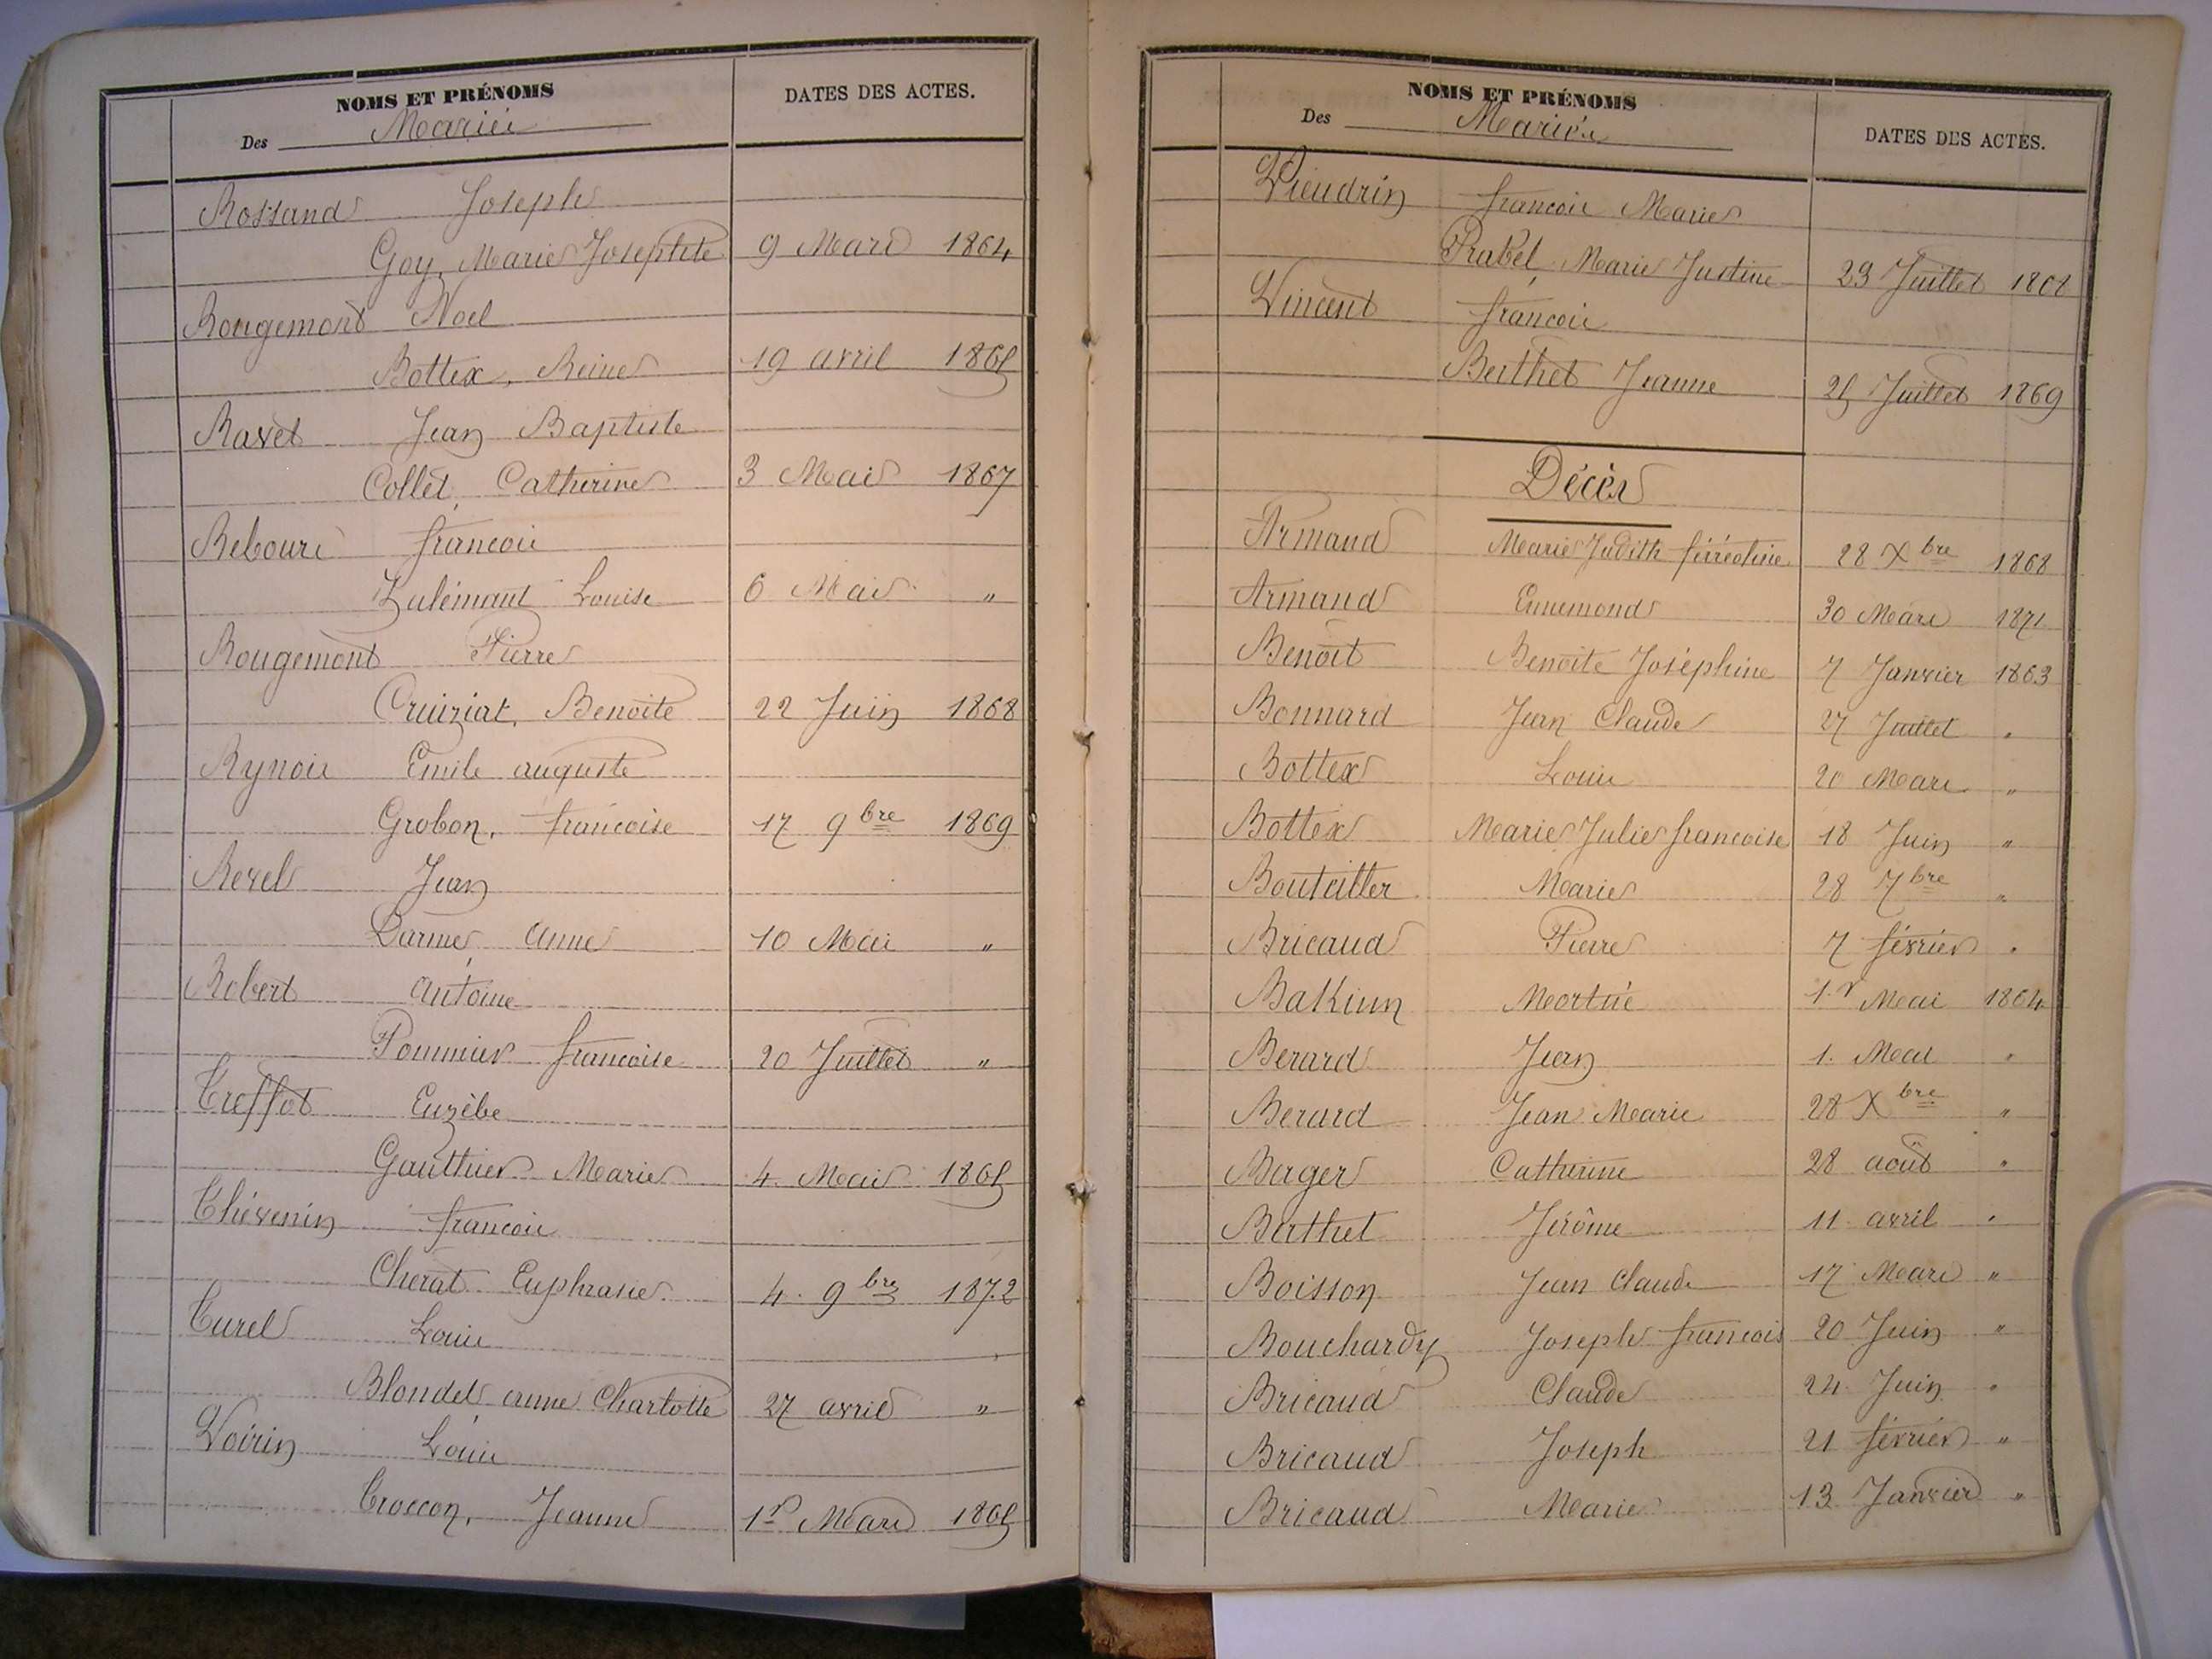 NOMS ET PRÉNOMS
DATES DES ACTES.
Des Mariés
Rossand Joseph
Goy, Marie Josephte 9 Mars 1864
Rougemont Noel
Bottex, Reine 19 avril 1865
Ravet Jean Baptiste
Collet, Catherine 3 Mai 1867
Rebours françois
Zulémant Louise 6 Mai "
Rougemont Pierre
Cruiziat, Benoite 22 Juin 1868
Rynois Emile auguste
Grobon, françoise 17 9bre 1869
Revel Jean
Darme, Anne 10 Mai "
Robert Antoine
Pommier françoise 20 Juillet "
Treffot Euzèbe
Gauthier Marie 4 Mai 1865
Thévenin françois
Cherat Euphrasie 4. 9bre 1872
Turel Louis
Blondel anne Charlotte 27 avril "
Voirin Louis
Croccon, Jeanne 1r Mars 1865
NOMS ET PRÉNOMS
DATES DES ACTES.
Des Mariés
Vieudrin françois Marie
Prabel, Marie Justine 23 Juillet 1868
Vincent françois
Berthet Jeanne 25 Juillet 1869
Décès
Armand Marie Judith ferréoline 28 Xbre 1868
Armand Ennemond 30 Mars 1871
Benoit Benoite Joséphine 7 Janvier 1863
Bonnard Jean Claude 27 Juillet "
Bottex Louis 20 Mars "
Bottex Marie Julie françoise 18 Juin "
Bouteiller Marie 28 7bre "
Bricaud Pierre 7 février "
Bakiun Mortné 1.r Mai 1864
Berard Jean 1. Mai "
Berard Jean Marie 28 Xbre "
Berger Catherine 28 août "
Berthet Jérôme 11 avril "
Boisson Jean Claude 17 Mars "
Bouchardy Joseph françois 20 Juin "
Bricaud Claude 24 Juin "
Bricaud Joseph 21 février "
Bricaud Marie 13 Janvier "